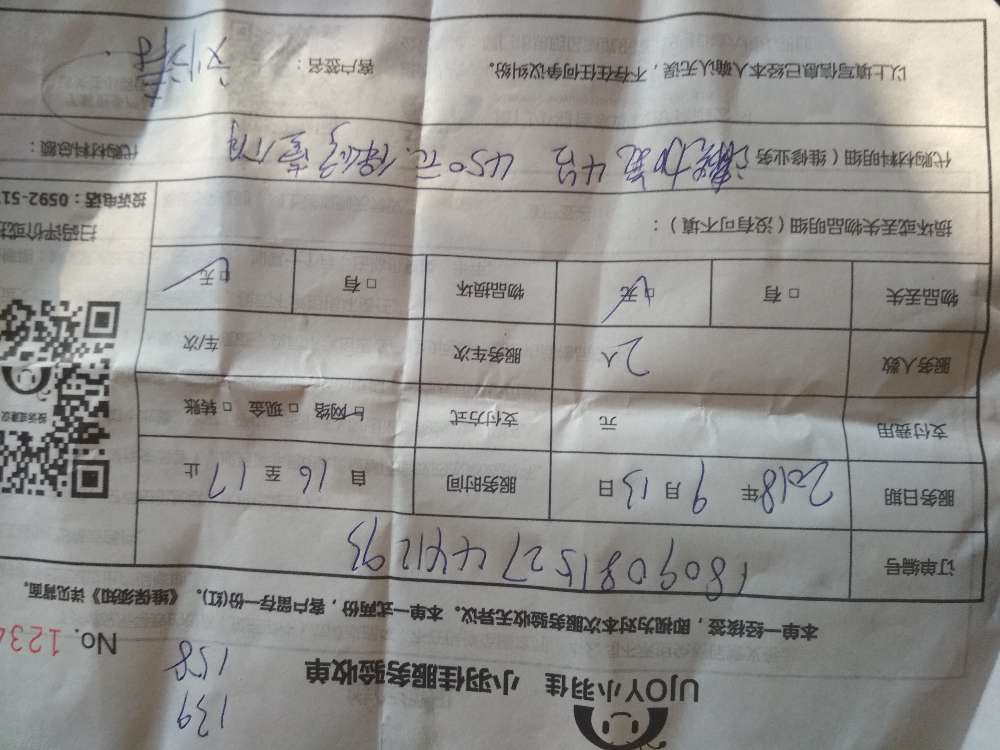 139
158
UJOY小羽佳 小羽佳服务验收单
No. 1234
本单一经接签，即视为对本次服务验收无异议。本单一式两份，客户留存一份(红)。《维保须知》详见背面。
订单编号 1809081527441293
服务日期 2018年 9月 13日 服务时间 自 16 至 17 止
支付费用 元 支付方式 网络 □ 现金 □ 转账
服务人数 2人 服务车次 车/次
物品丢失 □ 有 □ 无 物品损坏 □ 有 □ 无
投诉或建议
扫码评价或投
投诉电话：0592-51
损坏或丢失物品明细（没有可不填）：
代购材料明细（维修业务 加氟 4台 450元. 保修壹个月 代购材料总额：
以上填写信息已经本人确认无误，不存在任何争议纠纷。 客户签名：